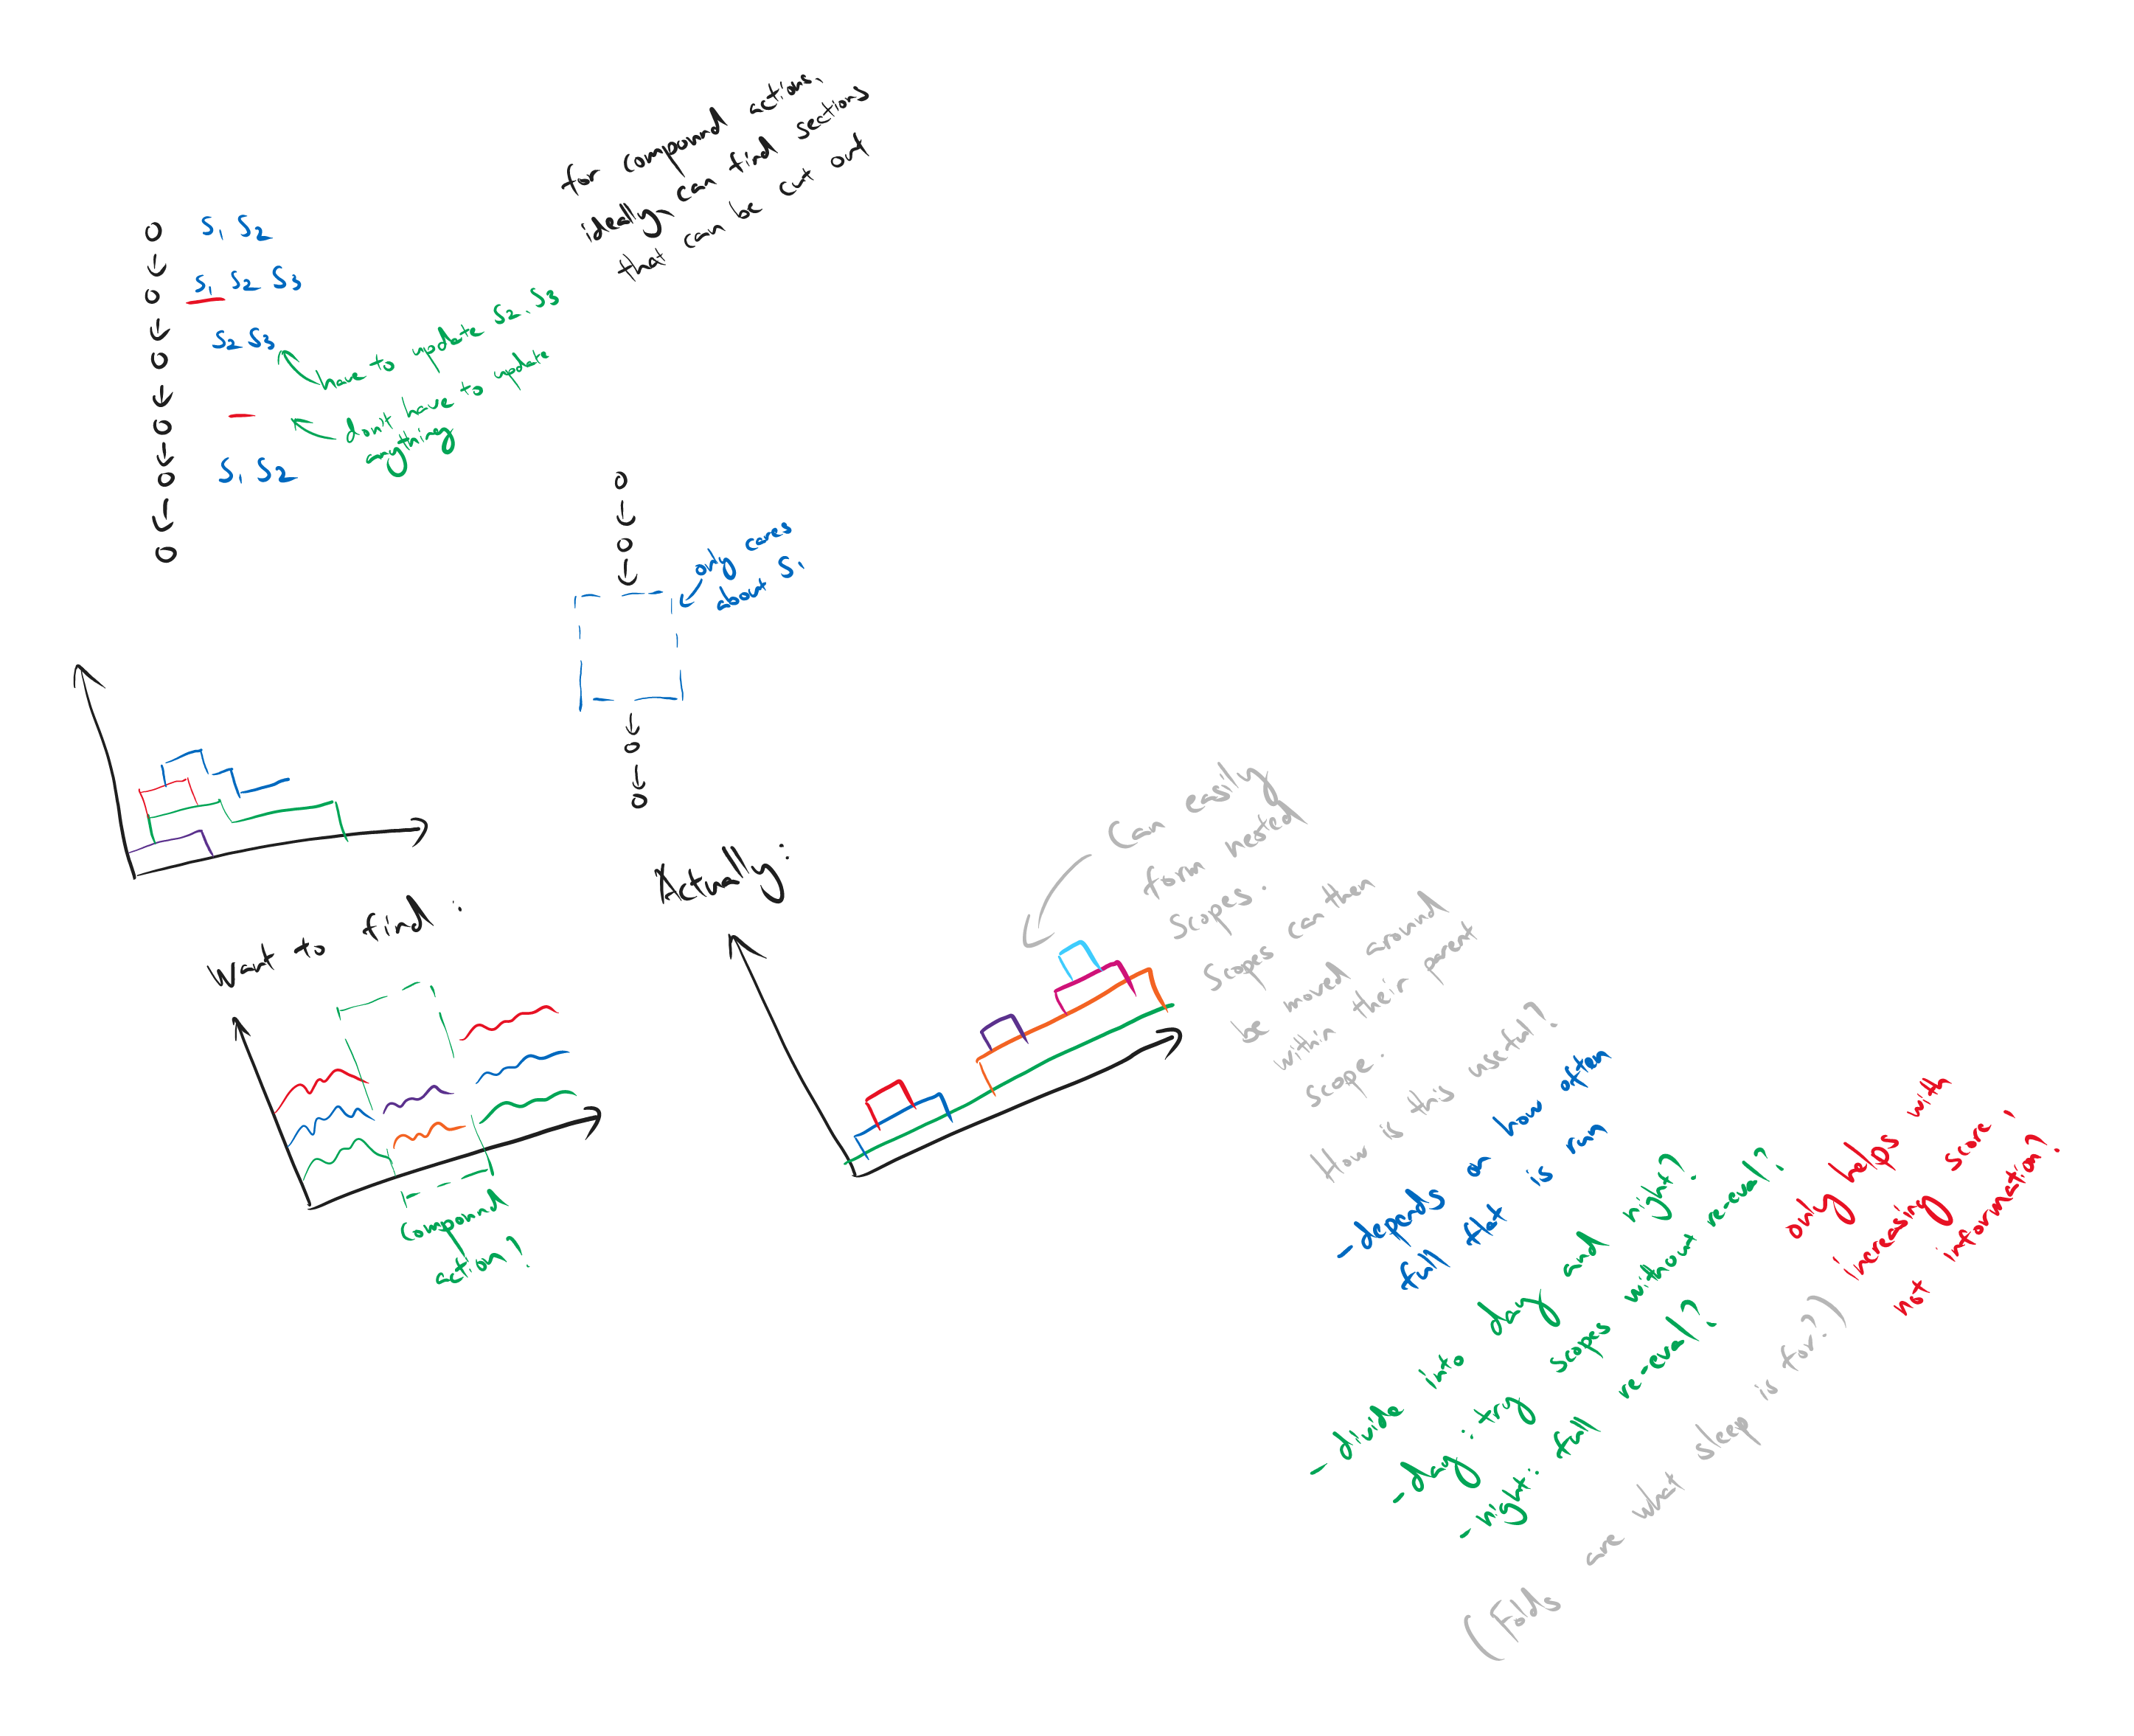 for compound actions,
ideally can find sections
that can be cut out
S1 S2
S1 S2 S3
S2 S3
have to update S2, S3
—
don't have to update
anything
S1 S2
only cares
about S1
Want to find:
Compound
action?
Actually:
Can easily
form nested
scopes:
Scopes can then
be moved around
within their parent
scope.
How is this useful?
- depends on how often
full txt is run
- divide into day and night?
- day: try scopes without re-eval?
- night: full re-eval?
only helps with
'increasing score',
not 'information'.
(Folds are what sleep is for?)